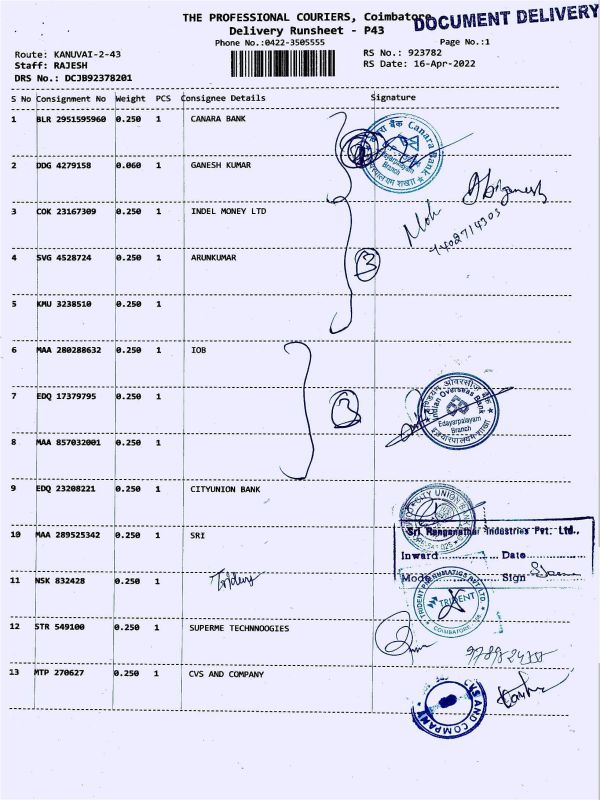 THE PROFESSIONAL COURIERS, Coimbatore
DOCUMENT DELIVERY
Delivery Runsheet - P43
Phone No.:0422-3505555
Page No.:1
Route: KANUVAI-2-43
RS No.: 923782
Staff: RAJESH
RS Date: 16-Apr-2022
DRS No.: DCJB92378201
S No Consignment No Weight PCS Consignee Details Signature
1 BLR 2951595960 0.250 1 CANARA BANK
Canara Bank
Branch
2 DDG 4279158 0.060 1 GANESH KUMAR
3 COK 23167309 0.250 1 INDEL MONEY LTD
Moh
7402714303
4 SVG 4528724 0.250 1 ARUNKUMAR
3
5 KMU 3238510 0.250 1
6 MAA 280288632 0.250 1 IOB
7 EDQ 17379795 0.250 1
3
इण्डियन ओवरसीज़ बैंक
Indian Overseas Bank
Edayarpalayam
Branch
8 MAA 857032001 0.250 1
9 EDQ 23208221 0.250 1 CITYUNION BANK
CITY UNION BANK
10 MAA 289525342 0.250 1 SRI
Sri Ranganathar Industries Pvt. Ltd.,
Inward Date
Mode Sign
11 NSK 832428 0.250 1
TRIDENT PNEUMATICS PVT LTD
TRIDENT
COIMBATORE
12 STR 549100 0.250 1 SUPERME TECHNNOOGIES
13 MTP 270627 0.250 1 CVS AND COMPANY
CVS AND COMPANY